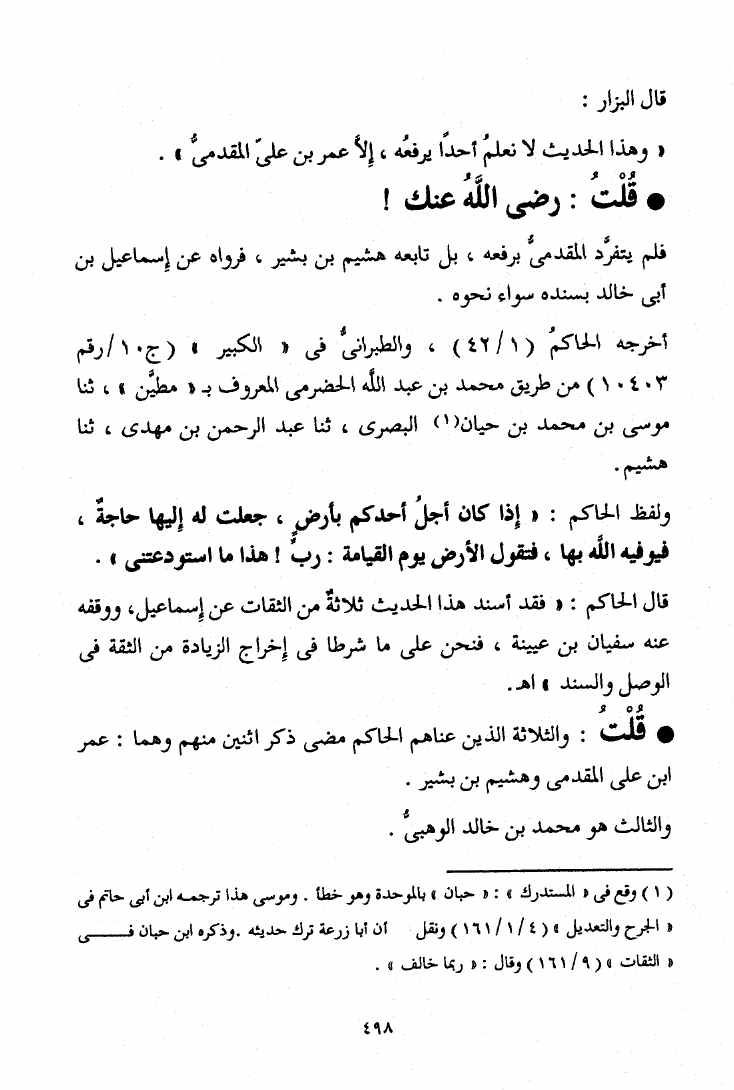 قال البزار :
« وهذا الحديث لا نعلمُ أحداً يرفعُه ، إلاَّ عمر بن علىّ المقدمىُّ » .
● قُلْتُ : رضى اللَّهُ عنك !
فلم يتفرَّد المقدمىُّ برفعه ، بل تابعه هشيم بن بشير ، فرواه عن إسماعيل بن
أبى خالد بسنده سواء نحوه .
أخرجه الحاكمُ ( ٤٢/١ ) ، والطبرانىُّ فى « الكبير » ( ج١٠/رقم
١٠٤٠٣ ) من طريق محمد بن عبد اللَّه الحضرمى المعروف بـ « مطيَّن » ، ثنا
موسى بن محمد بن حيان(١) البصرى ، ثنا عبد الرحمن بن مهدى ، ثنا
هشيم .
ولفظ الحاكم : « إذا كان أجلُ أحدكم بأرضٍ ، جعلت له إليها حاجةٌ ،
فيوفيه اللَّه بها ، فتقول الأرض يوم القيامة : ربِّ ! هذا ما استودعتنى » .
قال الحاكم : « فقد أسند هذا الحديث ثلاثةٌ من الثقات عن إسماعيل، ووقفه
عنه سفيان بن عيينة ، فنحن على ما شرطا فى إخراج الزيادة من الثقة فى
الوصل والسند » اهـ.
● قُلْتُ : والثلاثة الذين عناهم الحاكم مضى ذكر اثنين منهم وهما : عمر
ابن على المقدمى وهشيم بن بشير .
والثالث هو محمد بن خالد الوهبىُّ .
( ١ ) وقع فى « المستدرك » : « حبان » بالموحدة وهو خطأ . وموسى هذا ترجمه ابن أبى حاتم فى
« الجرح والتعديل » ( ١٦١/١/٤ ) ونقل أن أبا زرعة ترك حديثه .وذكره ابن حبان فــــى
« الثقات » ( ١٦١/٩ ) وقال : « ربما خالف » .
٤٩٨